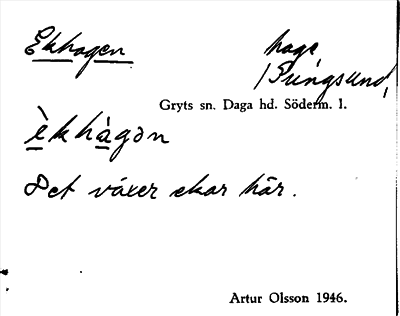 Ekhagen hage
Gryts sn. Daga hd. Söderm. l.
èkhàgən
Det växer ekar här.
Artur Olsson 1946.